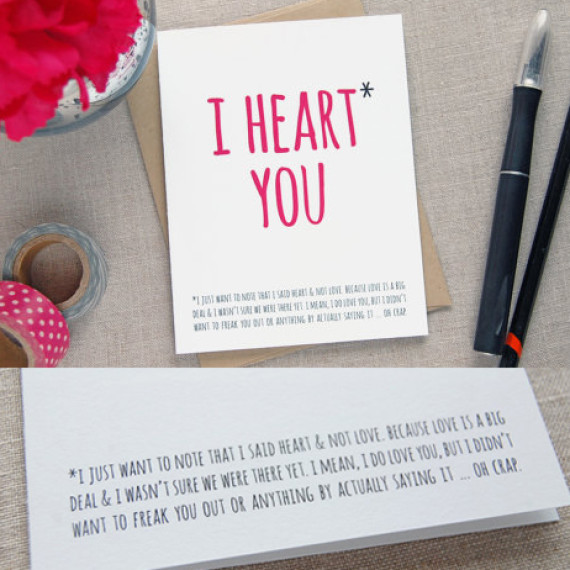 I HEART*
YOU
*I JUST WANT TO NOTE THAT I SAID HEART & NOT LOVE. BECAUSE LOVE IS A BIG
DEAL & I WASN'T SURE WE WERE THERE YET. I MEAN, I DO LOVE YOU, BUT I DIDN'T
WANT TO FREAK YOU OUT OR ANYTHING BY ACTUALLY SAYING IT ... OH CRAP.
*I JUST WANT TO NOTE THAT I SAID HEART & NOT LOVE. BECAUSE LOVE IS A BIG
DEAL & I WASN'T SURE WE WERE THERE YET. I MEAN, I DO LOVE YOU, BUT I DIDN'T
WANT TO FREAK YOU OUT OR ANYTHING BY ACTUALLY SAYING IT ... OH CRAP.